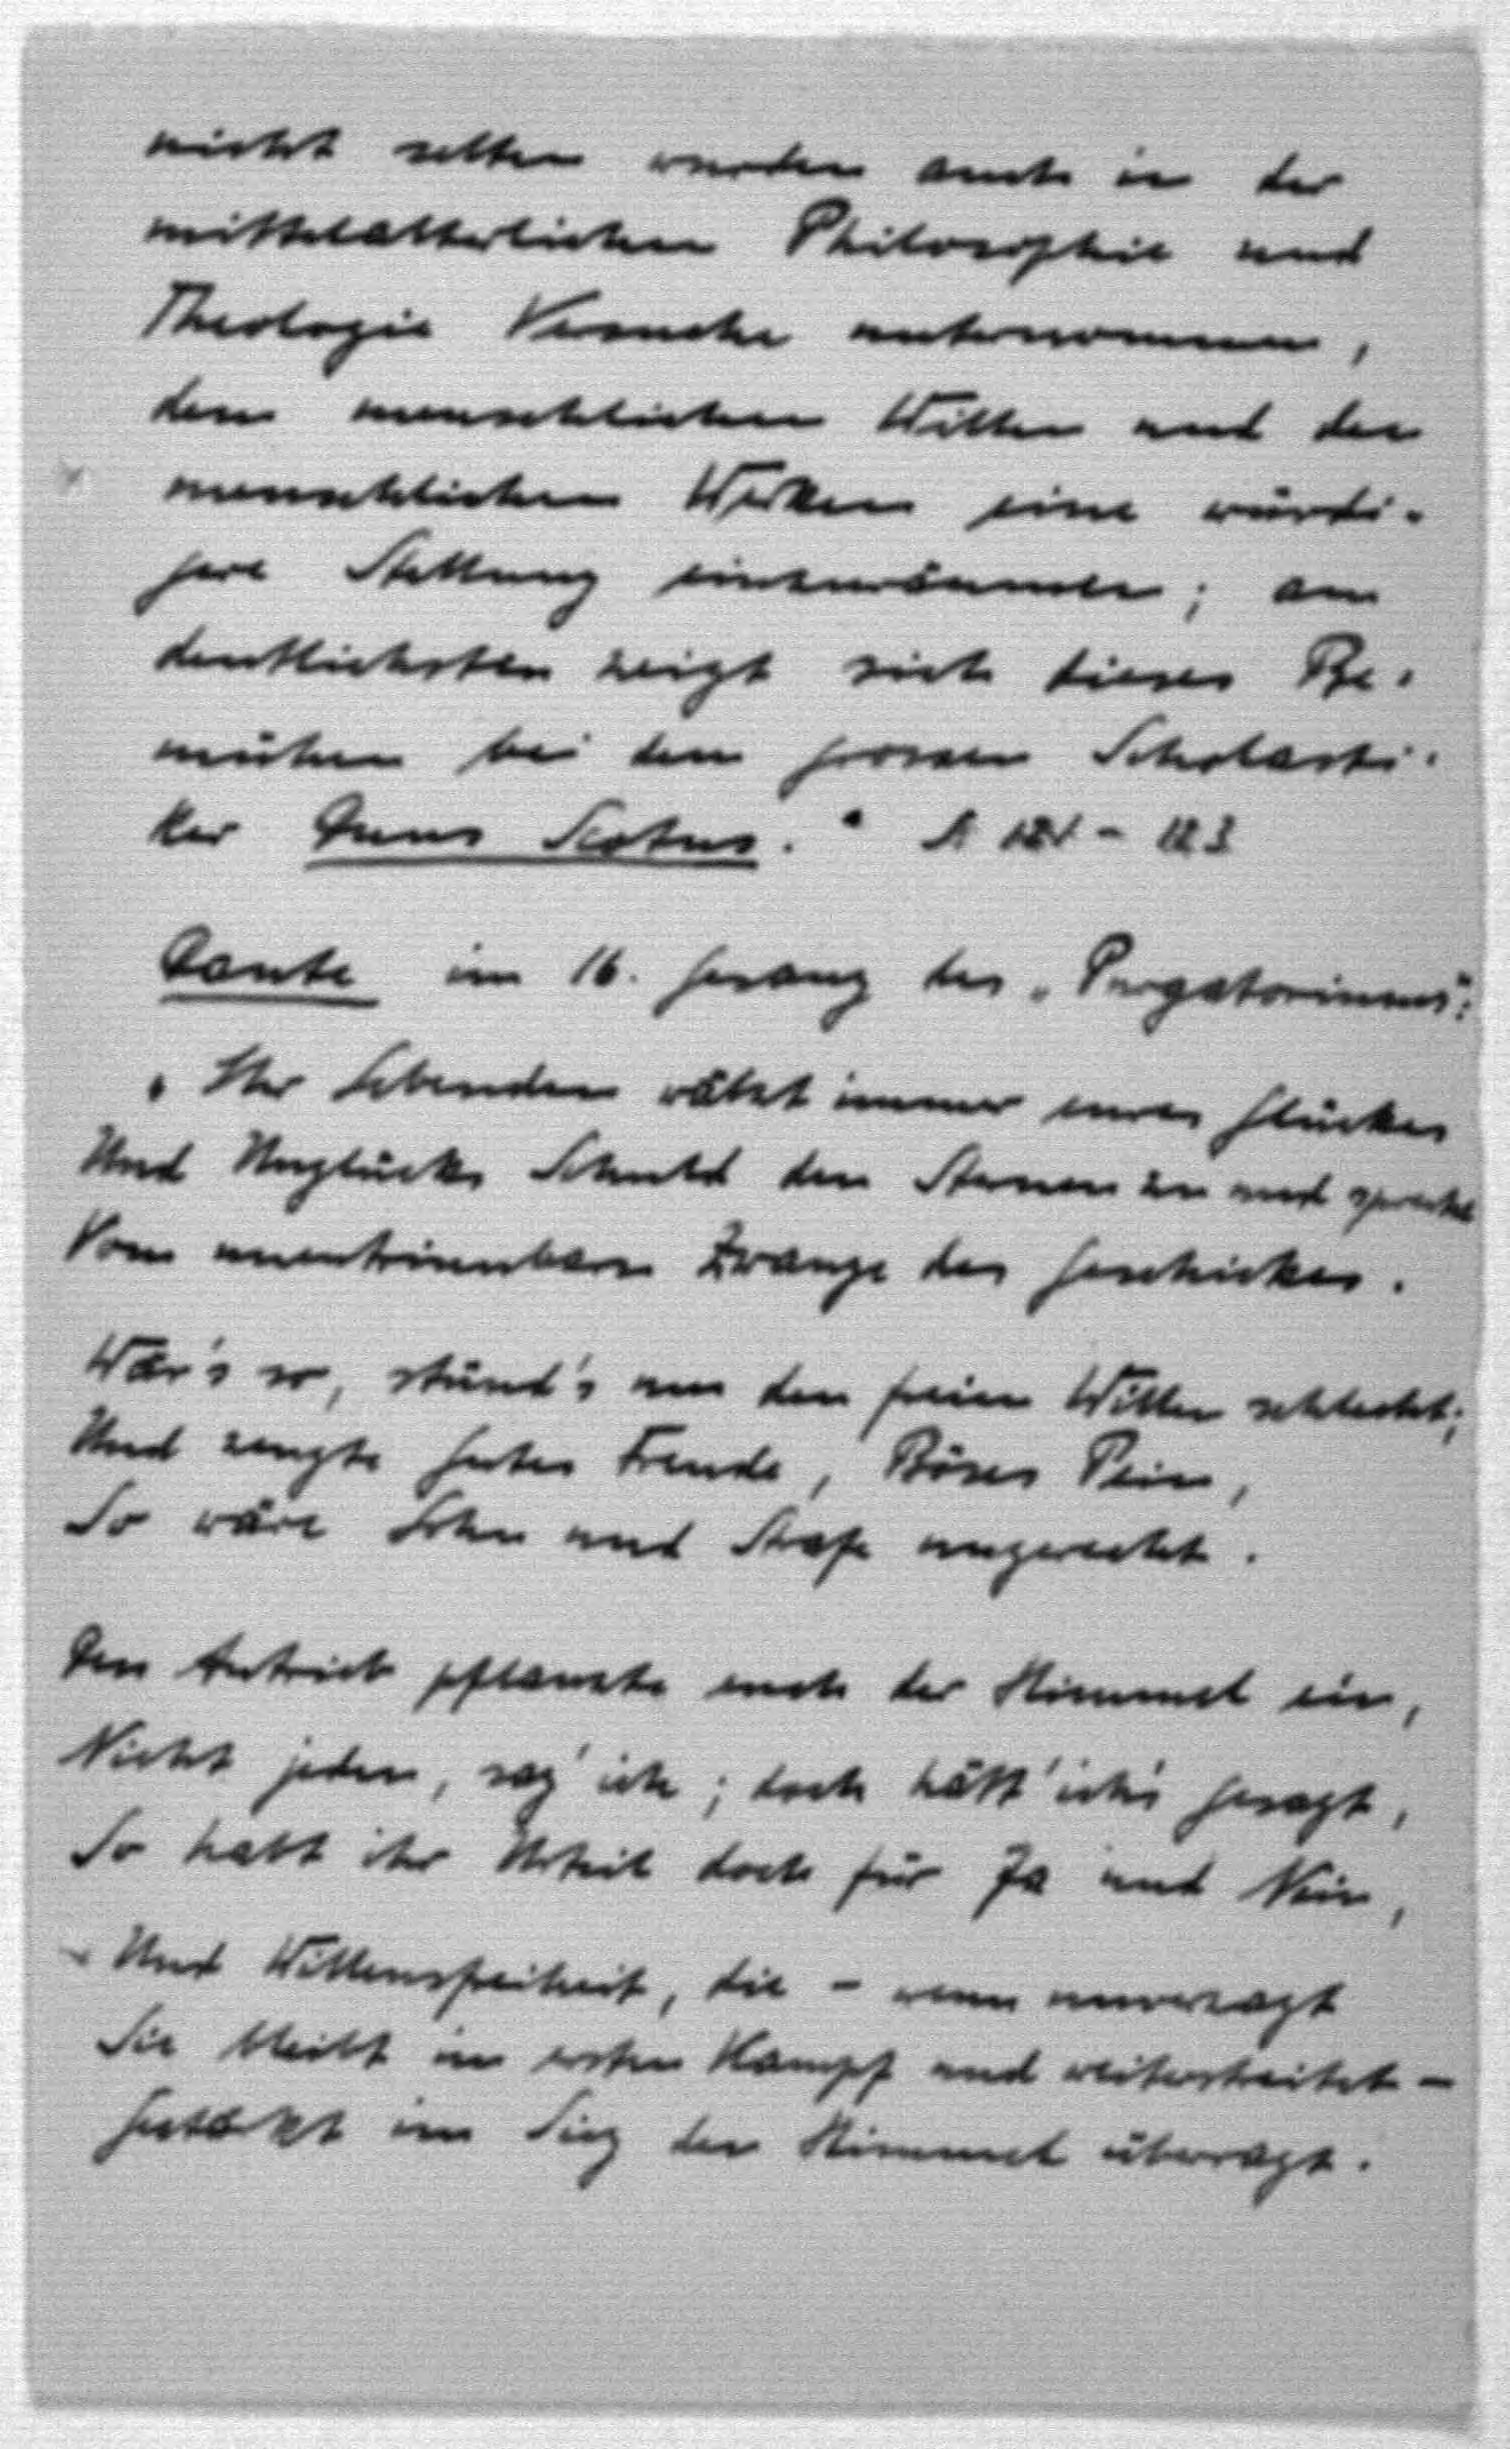 nicht selten wurden auch in der
mittelalterlichen Philosophie und
Theologie Versuche unternommen,
dem menschlichen Willen und den
menschlichen Werken eine würdi-
gere Stellung einzuräumen; am
deutlichsten zeigt sich dieses Be-
mühen bei dem grossen Scholasti-
ker Duns Scotus." S. 121 - 123
Dante im 16. Gesang des „Purgatoriums":
„Ihr Lebenden wälzt immer eures Glückes
Und Unglücks Schuld den Sternen zu und sprecht
Vom unentrinnbaren Zwange des Geschickes.
Wär's so, stünd's um den freien Willen schlecht;
Und zeugte Gutes Freude, Böses Pein,
So wäre Lohn und Strafe ungerecht.
Den Antrieb pflanzte euch der Himmel ein,
Nicht jeden, sag' ich; doch hätt' ich's gesagt,
So habt ihr Urteil doch für Ja und Nein,
Und Willensfreiheit, die - wenn unverzagt
Sie bleibt im ersten Kampf und weiterstreitet -
Gestärkt im Sieg den Himmel überragt.